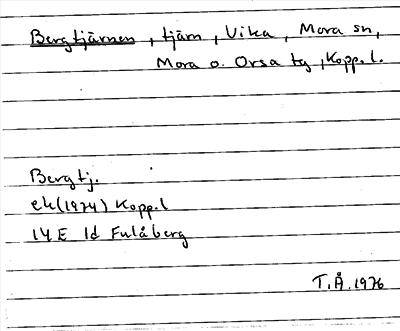 Bergtjärnen, tjärn, Vika, Mora sn,
Mora o. Orsa tg, Kopp.l.
Bergtj.
ek(1974) Kopp.l
14E 1d Fulåberg
T.Å. 1976